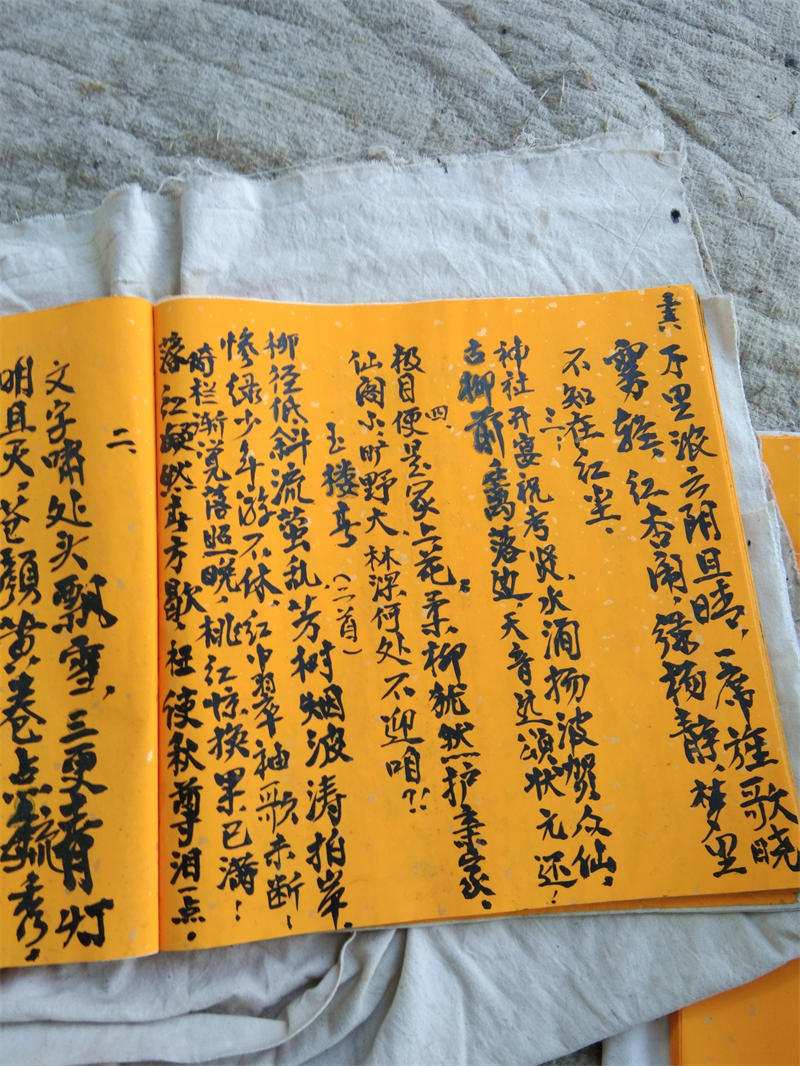 万里波云阴且晴,一席旌歌晓
雾轻,红杏闹,绿杨静,梦里
不知在红尘。
三、
神社开宴祝考贤,水涌扬波贺众仙,
古柳前离落边,天音远颂状元还!
四、
极目便是家上花,柔柳犹然护亲家。
仙阁小旷野大,林深何处不迎咱?!
玉楼春(二首)
柳径低斜流萤乱,芳树烟波涛拍岸。
惨绿少年游不休,红巾翠袖歌未断!
倚栏渐觉落照晚,桃红惊换果已满!
落红凝然春方歇,枉使秋尊泪一点。
二、
文字啸处头飘雪,三更青灯
明且灭,苍颜黄卷点疏秀。